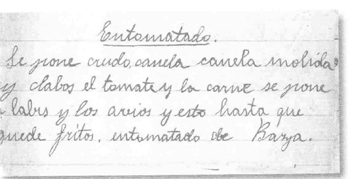 Entomatado.
Se pone crudo, canela canela molida
y clabos el tomate y la carne se pone
labrs y los avios y esto hasta que
quede fritos, entomatado de Barza.